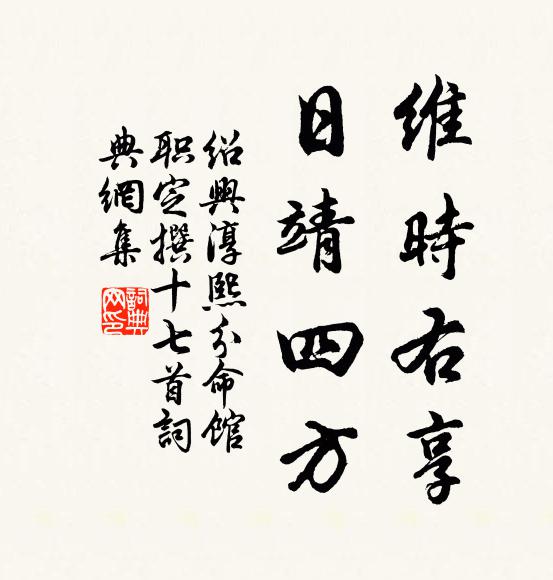 維時右享
日靖四方
绍興淳熙分命館
职定撰十七首詞
典網集
詞典
网印